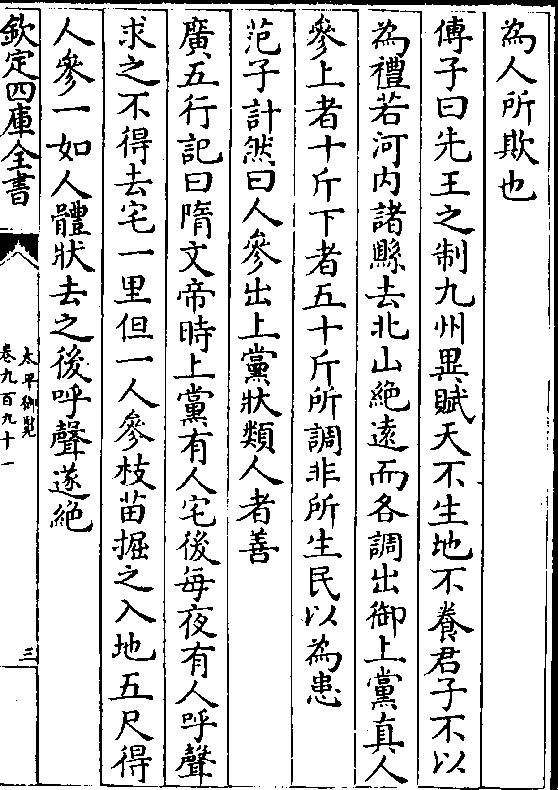 為人所欺也
傅子曰先王之制九州異賦天不生地不養君子不以
為禮若河内諸縣去北山絶遠而各調出御上黨真人
參上者十斤下者五十斤所調非所生民以為患
范子計然曰人參出上黨狀類人者善
廣五行記曰隋文帝時上黨有人宅後毎夜有人呼聲
求之不得去宅一里但一人參枝苗掘之入地五尺得
人參一如人體狀去之後呼聲遂絶
欽定四庫全書
太平御覽
卷九百九十一
三